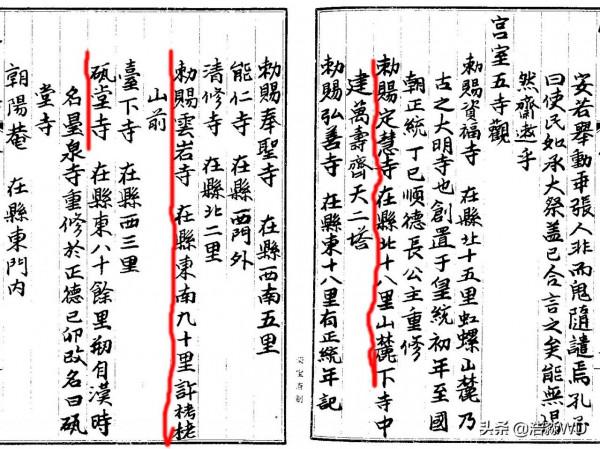 妄若舉動乖張人非而鬼隨譴焉孔子
曰使民如承大祭盖已合言之矣能無惕
然齋遫乎
宫室五寺觀
勅賜資福寺 在縣北十五里虹螺山麓乃
古之大明寺也創置于皇統初年至國
朝正統丁巳順德長公主重修
勅賜定慧寺在縣北十八里山麓下寺中
建萬壽齊天二塔
勅賜弘善寺 在縣東十八里有正統年記
勅賜奉聖寺 在縣西南五里
能仁寺 在縣西門外
清修寺 在縣北二里
勅賜雲岩寺 在縣東南九十里許栲栳
山前
臺下寺 在縣西三里
砥堂寺 在縣東八十餘里剏自漢時
名曇泉寺重修於正德己卯改名曰砥
堂寺
朝陽菴 在縣東門内
头条 @浩彬VVU